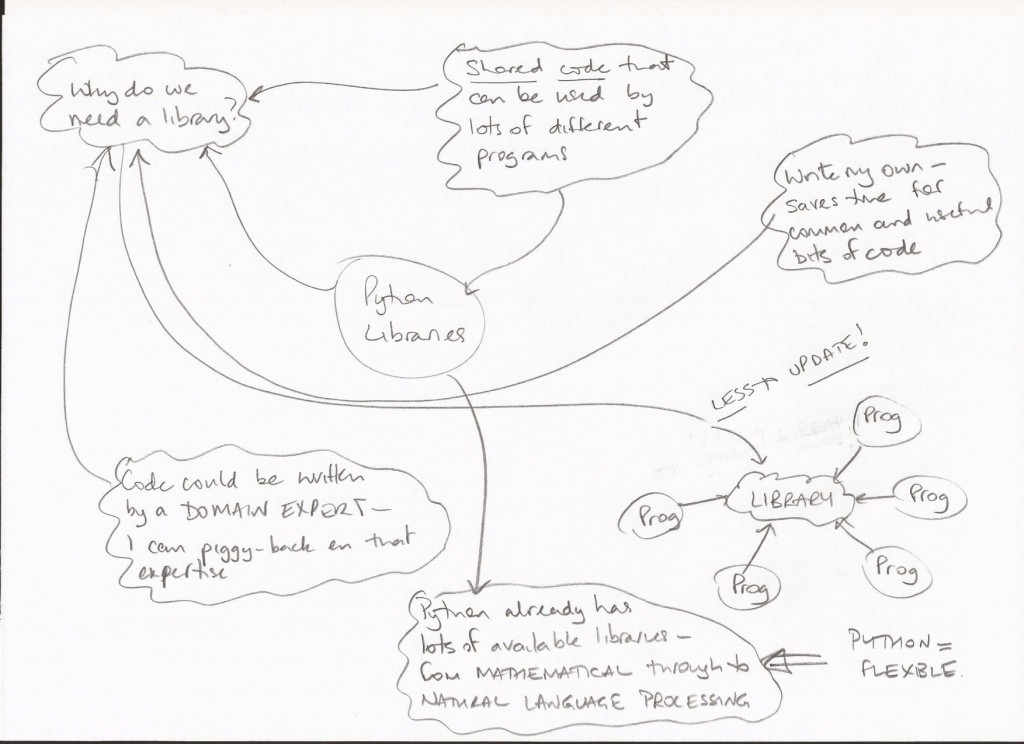 Why do we
need a library?
Shared code that
can be used by
lots of different
programs
Write my own –
saves time for
common and useful
bits of code
Python
Libraries
LESS TO UPDATE!
Prog
Prog
LIBRARY
Prog
Prog
Prog
Code could be written
by a DOMAIN EXPERT –
I can piggy-back on that
expertise
Python already has
lots of available libraries –
from MATHEMATICAL through to
NATURAL LANGUAGE PROCESSING
PYTHON =
FLEXIBLE.